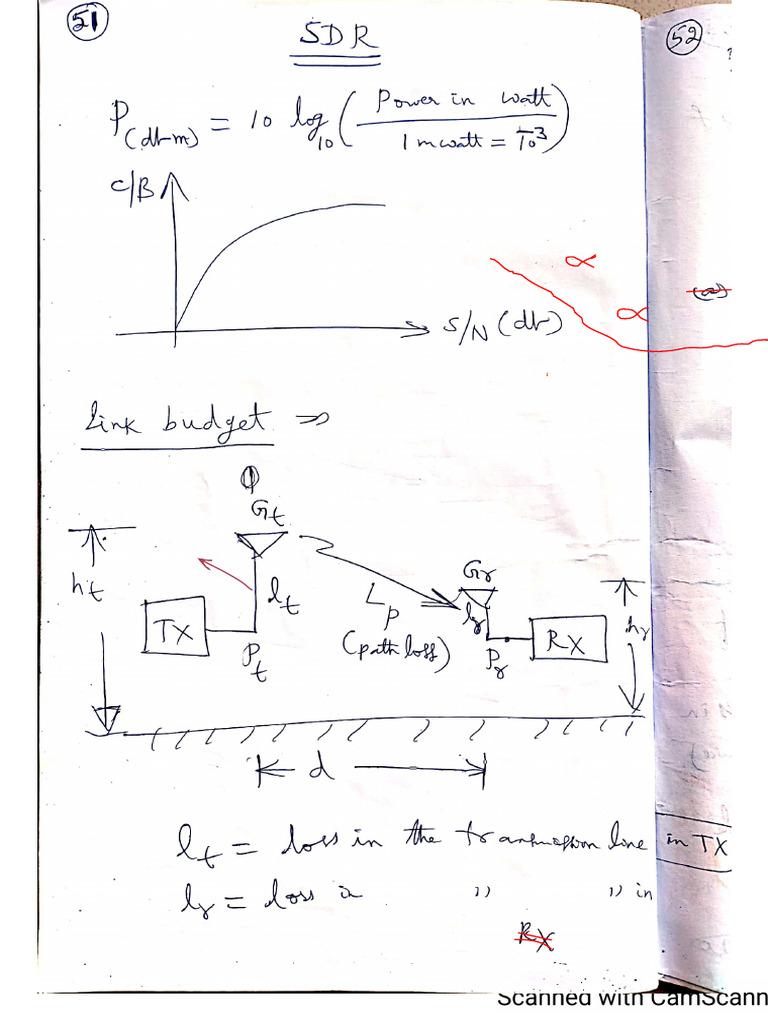 51
52
SDR
P(db-m) = 10 log10 (Power in watt / 1 mwatt = 10^-3)
C/B
α
α
S/N (db)
Link budget ⇒
Gt
ht
lt
Gr
lr
hr
TX
Lp
(path loss)
RX
Pt
Pr
d
lt = loss in the transmission line in TX
lr = loss in " " in
RX
Scanned with CamScann